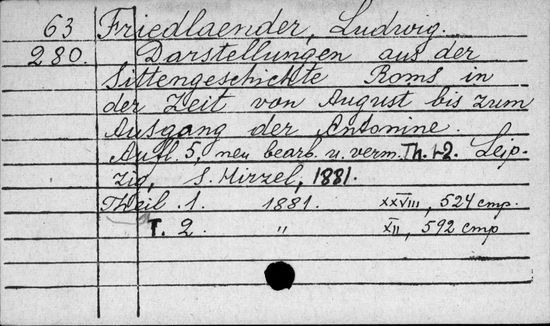 63 Friedlaender, Ludwig.
280. Darstellungen aus der
Sittengeschichte Roms in
der Zeit von August bis zum
Ausgang der Antonine.
Aufl. 5, neu bearb. u. verm. Th. 1-2. Leip-
zig, S. Hirzel, 1881.
Theil 1. 1881. XXVIII, 524 cmp.
T. 2 " XII, 592 cmp